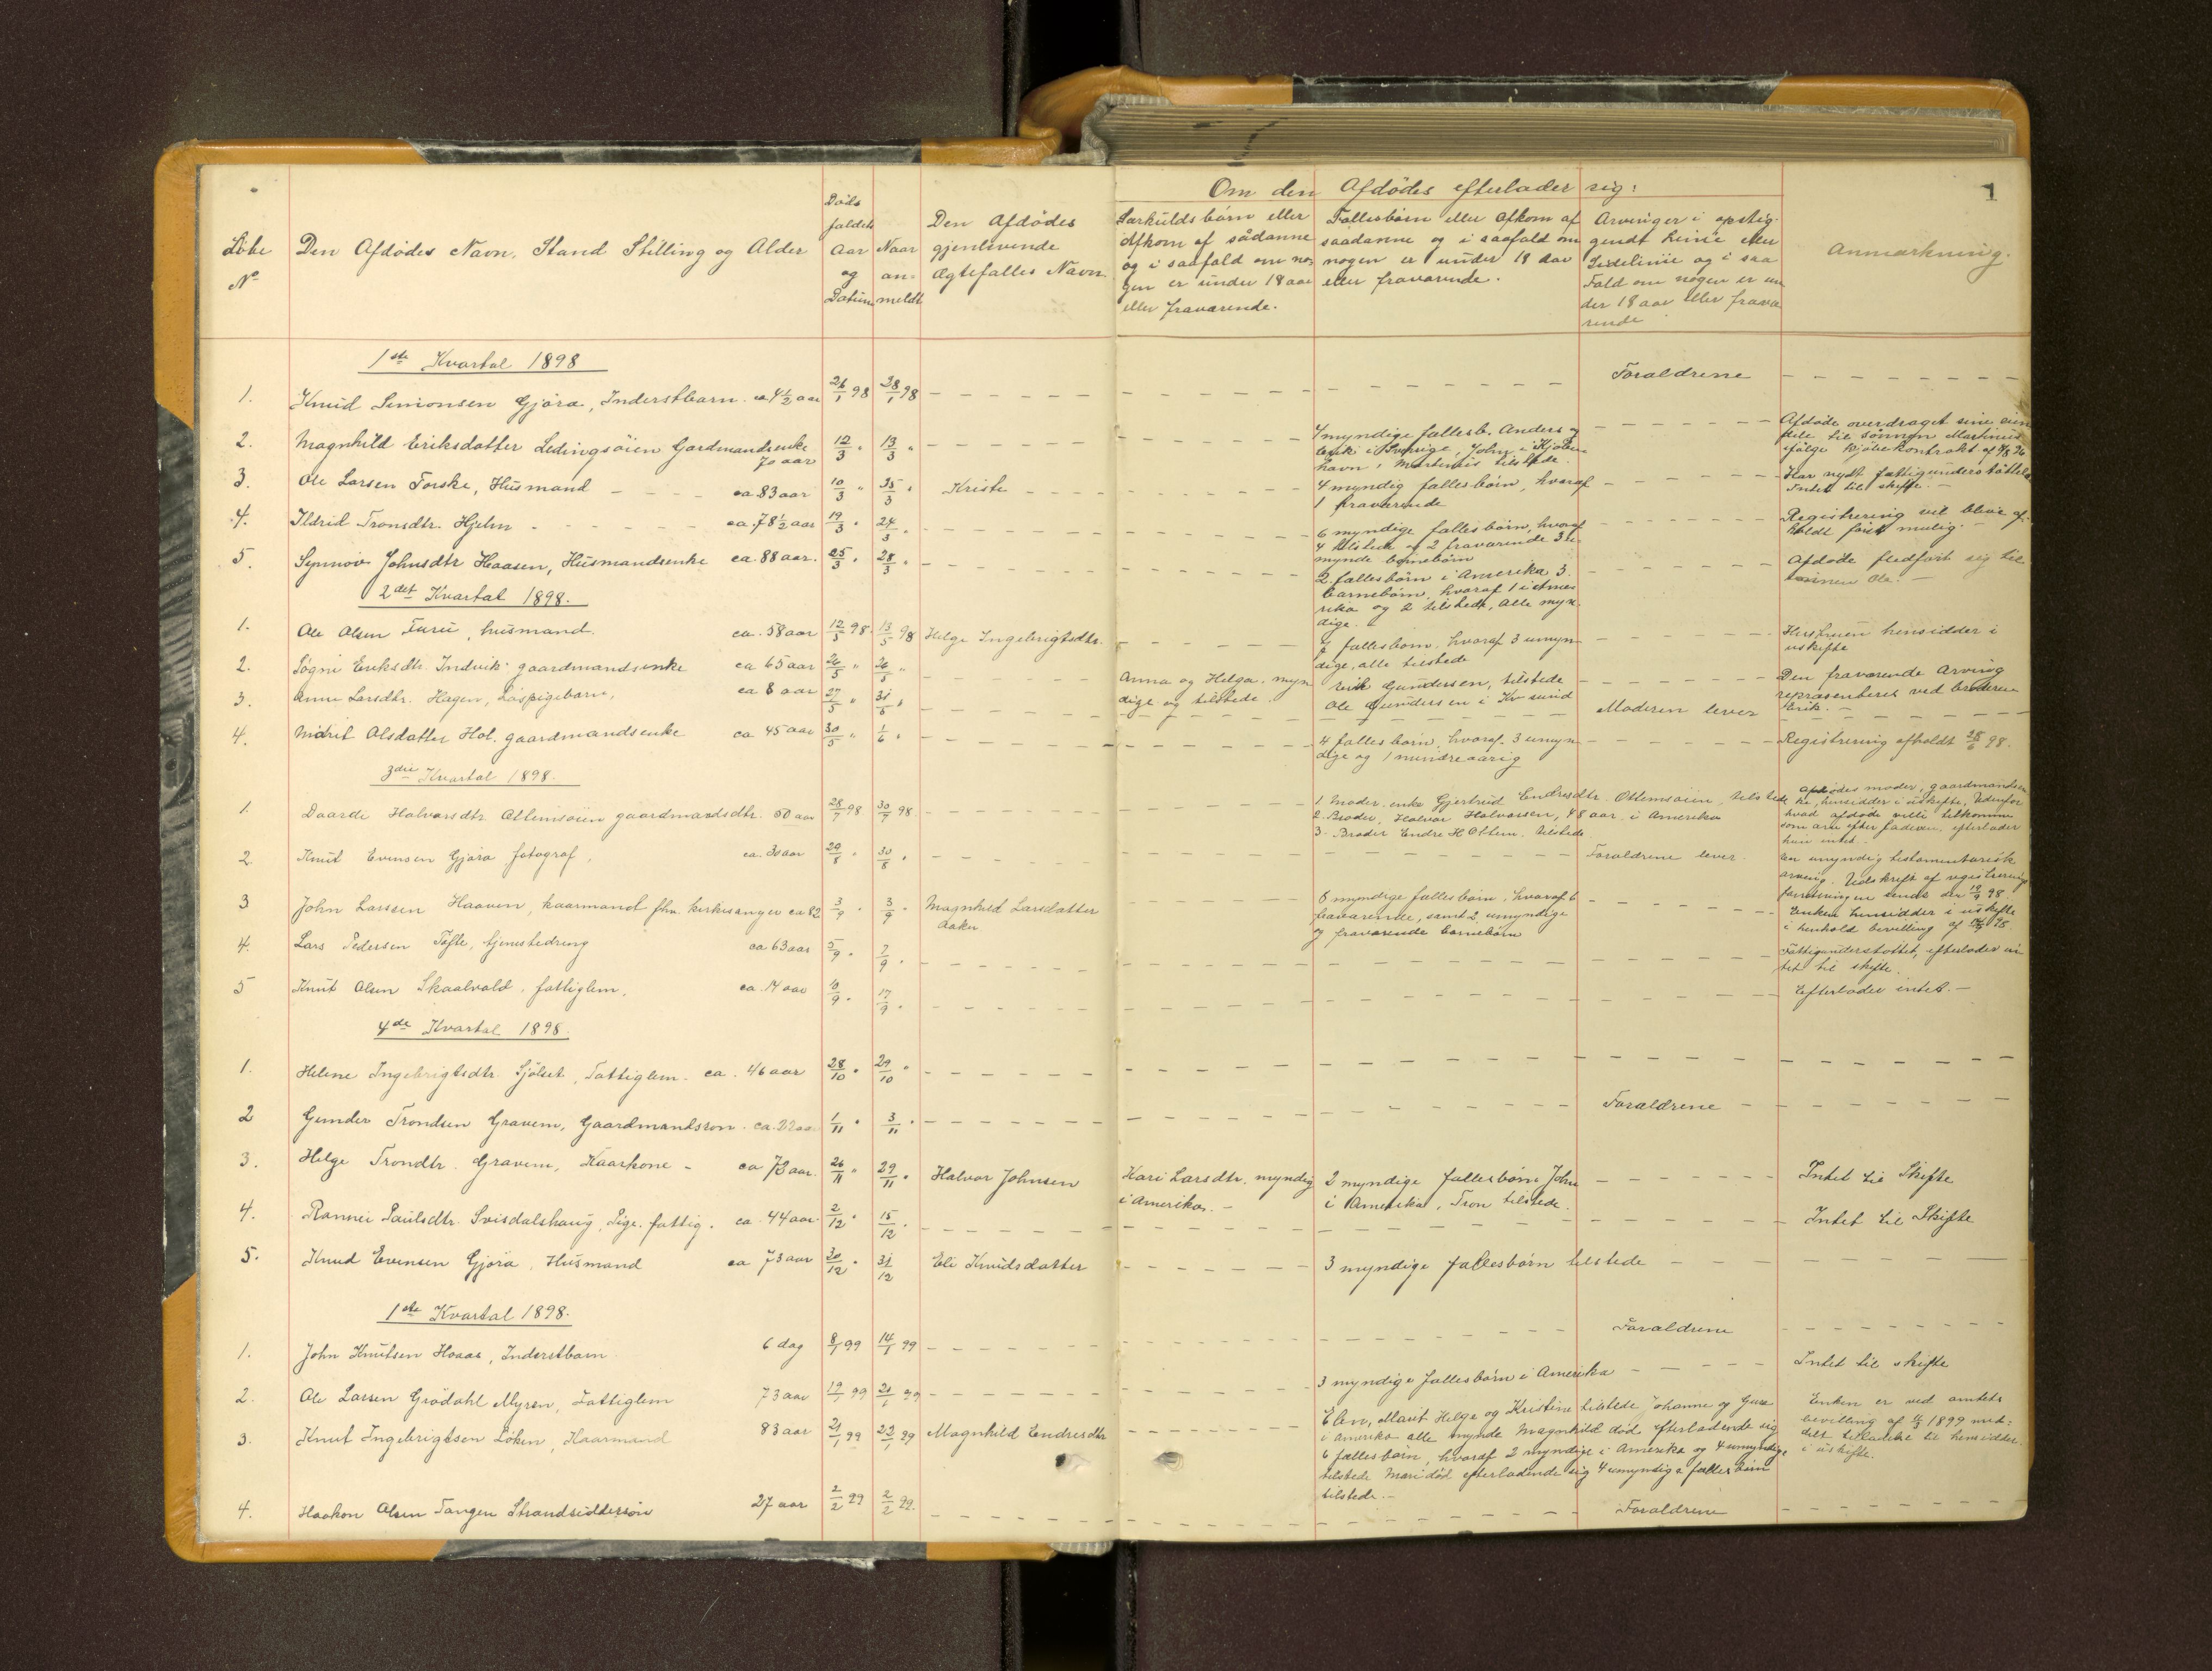 1
Om den Afdødes efterlader sig:
Løbe No
Den Afdødes Navn, Stand Stilling og Alder
Dødsfaldets Aar og Datum
Naar anmeldt
Den Afdødes gjenlevende Ægtefælles Navn
Særkuldsbørn eller Afkom af sådanne og i saafald om nogen er under 18 aar eller fraværende.
Fællesbørn eller Afkom af saadanne og i saafald om nogen er under 18 aar eller fraværende.
Arvinger i opstigendt Linie eller Sidelinie og i saa Fald om nogen er under 18 aar eller fraværende
Anmærkning.
1ste Kvartal 1898
1. Knud Simonsen Gjøra, Inderstbarn. ca 4 1/2 aar 26/1 98 28/1 98 Forældrene
2. Magnhild Eriksdatter Ledingsöien Gardmandsenke 70 aar 12/3 " 13/3 " 4 myndige fællesb. Anders og Erik i Sverige, John i Kjøbenhavn, Martinus tilstede. Afdøde overdraget sine eiendele til sønnen Martinus ifølge Kjøbekontrakt af
3. Ole Larsen Forske, Husmand ca 83 aar 10/3 " 35/3 " Kristi 4 myndig fællesbørn, hvoraf 1 fraværende Har nydt fattigunderstøttelse Intet til skifte.
4. Ildrid Tronsdtr. Hjelm ca. 78 1/2 aar 19/3 " 24/3 " 6 myndige fællesbørn, hvoraf 4 tilstede og 2 fraværende 3 umynde børnebørn Registrering vil blive afholdt først mulig.
5. Synnöv Johnsdtr Haasen, Husmandsenke ca. 88 aar. 25/3 " 28/3 " 2 fællesbörn i Amerika 3 barnebörn, hvoraf 1 i Amerika og 2 tilstede, alle myndige. Afdøde fledført sig til sønnen Ole.
2det Kvartal 1898.
1. Ole Olsen Furu, husmand. ca. 58 aar 12/5 98. 13/5 98 Helge Ingebrigtsdtr. 7 fællesbørn, hvoraf 3 umyndige, alle tilstede Hustruen hensidder i uskifte
2. Sögni Eriksdtr. Indvik gaardmandsenke ca 65 aar 26/5 " 26/5 " Anna og Helga, myndige og tilstede. Erik Gundersen, tilstede Ole Gundersen i Kr.sund Den fraværende Arving repræsenteret ved broderen Erik.
3. Anne Larsdtr. Hagen, Løspigebarn, ca 8 aar 27/5 " 31/5 " Moderen lever
4. Marit Olsdatter Hol. gaardmandsenke ca 45 aar 30/5 " 1/6 " 4 fællesbørn, hvoraf 3 umyndige og 1 mindreaarig Registrering afholdt 28/6 98.
3die Kvartal 1898.
1. Daarde Halvorsdtr Ottemsøien gaardmandsdtr. 50 aar 28/7 98 30/7 98. 1 Moder, enke Gjertrud Endresdtr. Ottemsøien, tilstede 2. Broder, Halvor Halvorsen, 48 aar i Amerika 3. Broder Endre H Ottem. tilstede Afdødes moder, gaardmandsenke, hensidder i uskifte. Udenfor hvad afdøde ville tilkomme som arv efter faderen, efterlader hun intet.
2. Knut Evensen Gjøra fotograf, ca. 30 aar 29/8 " 30/8 " Forældrene lever. En umyndig testamentarisk arving. Udskrift af registreringsforretningen sendt den 19/9 98
3 John Larssen Haaven, kaarmand fhv. kirkesanger ca 82 3/9 " 3/9 " Magnhild Larsdatter Aaker. 8 myndige fællesbørn, hvoraf 6 fraværende, samt 2 umyndige og fraværende barnebørn Enken hensidder i uskifte i henhold bevilling af
4. Lars Pedersen Tofte, tjenestedreng ca 63 aar 5/9 " 7/9 " Fattigunderstøttet, efterlader intet til skifte.
5 Knut Olsen Skaalvold, fattiglem, ca. 14 aar 10/9 " 17/9 " Efterlader intet.
4de Kvartal 1898.
1. Helene Ingebrigtsdtr. Sjølset, Fattiglem. ca. 46 aar 28/10 " 29/10 "
2 Gunder Trondsen Gravem, Gaardmandssøn. ca. 22 aar 1/11 " 3/11 " Forældrene
3. Helge Trondtr. Gravem, Kaarkone - ca 73 aar. 26/11 " 29/11 " Halvor Johnsen Kari Larsdtr. myndig i Amerika. 2 myndige fællesbörn John i Amerika, Tron tilstede. Intet til Skifte
4. Rannei Paulsdtr. Svisdalshaug, Pige. fattig. ca. 44 aar. 2/12 " 15/12 " Intet til Skifte
5. Knud Evensen Gjøra, Husmand ca 73 aar 30/12 " 31/12 Eli Knudsdatter 3 myndige fællesbørn tilstede
1ste Kvartal 1898.
1. John Knutsen Hoaas, Inderstbarn 6 dag 8/1 99 14/1 99 Forældrene
2. Ole Larsen Grødahl Myren, Fattiglem 73 aar 19/1 99 21/1 99 3 myndige fællesbörn i Amerika Intet til skifte
3. Knut Ingebrigtsen Løken, Kaarmand 83 aar 21/1 99 23/1 99 Magnhild Endresdtr Elen, Marit Helge og Kristine tilstede Johanne og Guru i Amerika alle mynde Magnhild död efterladende sig 6 fællesbørn, hvoraf 2 myndige i Amerika og 4 umyndige tilstede Mari död efterladende sig 4 umyndige fællesbörn tilstede. Enken er ved amtets bevilling af 1899 meddelt tilladelse til hensidde i uskifte.
4. Haakon Olsen Tangen Strandsidderssön 27 aar 2/2 99 2/2 99. Forældrene